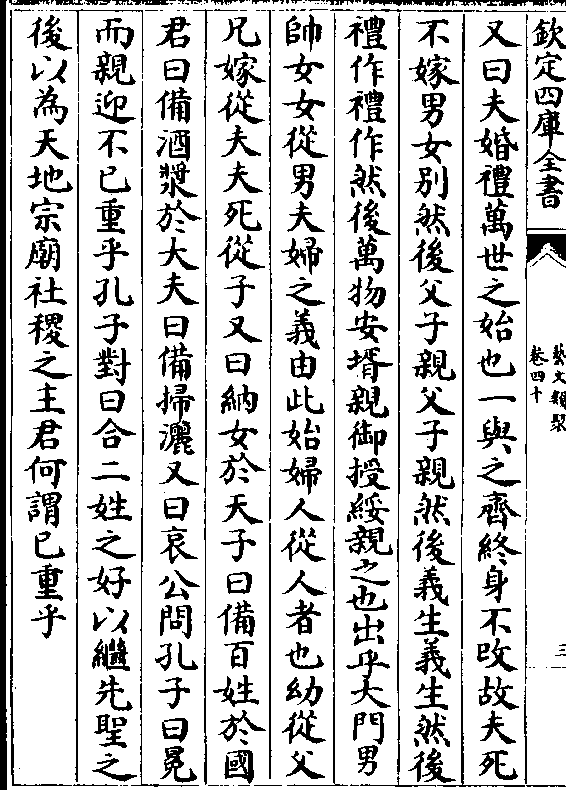 欽定四庫全書
藝文類聚
卷四十
三
又曰夫婚禮萬世之始也一與之齊終身不改故夫死
不嫁男女別然後父子親父子親然後義生義生然後
禮作禮作然後萬物安壻親御授綏親之也出乎大門男
帥女女從男夫婦之義由此始婦人從人者也幼從父
兄嫁從夫夫死從子又曰納女於天子曰備百姓於國
君曰備酒漿於大夫曰備掃灑又曰哀公問孔子曰冕
而親迎不已重乎孔子對曰合二姓之好以繼先聖之
後以為天地宗廟社稷之主君何謂已重乎